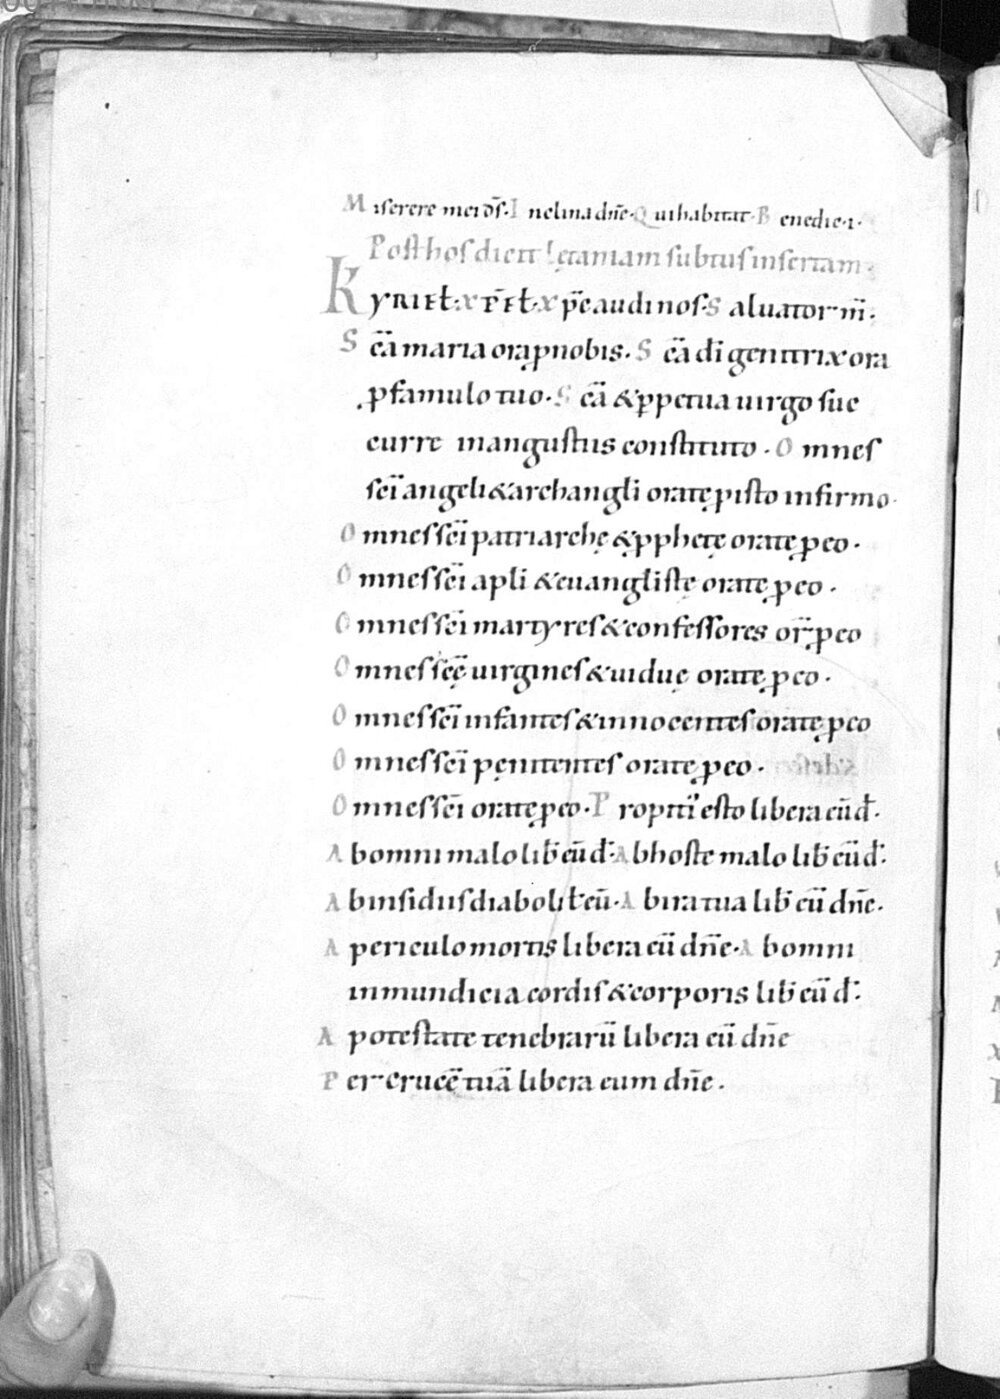 Miserere mei d̄s. Inclina dn̄e. Qui habitat. Benedic .i.
Post hos dicit lętaniam subtus insertam
KYRIEL. XPĒEL. Xp̄e audi nos. Saluator m̄.
Sc̄a maria ora ꝓ nobis. Sc̄a dī genitrix ora
ꝓ famulo tuo. Sc̄a & ꝑpetua uirgo suc
curre in angustiis constituto. Omnes
sc̄i angeli & archangli orate ꝓ isto infirmo.
Omnes sc̄i patriarchę & ꝓphetę orate ꝓ eo.
Omnes sc̄i apli & euanglistę orate ꝓ eo.
Omnes sc̄i martyres & confessores or̄ ꝓ eo
Omnes sc̄ę uirgines & uiduę orate ꝓ eo.
Omnes sc̄i infantes & innocentes orate ꝓ eo
Omnes sc̄i pęnitentes orate ꝓ eo.
Omnes sc̄i orate ꝓ eo. Propitiꝰ esto libera eū d̄.
Ab omni malo lib̄ eū d̄. Ab hoste malo lib̄ eū d̄.
Ab insidiis diaboli lb̄ eū. Ab ira tua lib̄ eū dn̄e.
A periculo mortis libera eū dn̄e. Ab omni
inmundicia cordis & corporis lib̄ eū d̄.
A potestate tenebrarū libera eū dn̄e
Per crucē tuā libera eum dn̄e.